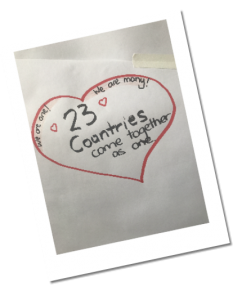 we are one!
we are many!
23
Countries
come together
as one.